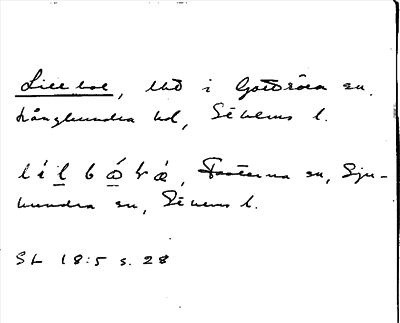 Lillboe, Uhd i Gottröra sn,
Långhundra hd, Sthlms l.
lílbóhà, Fasterna sn, Sju-
hundra sn, Sthlms l.
SL 18:5 s. 28